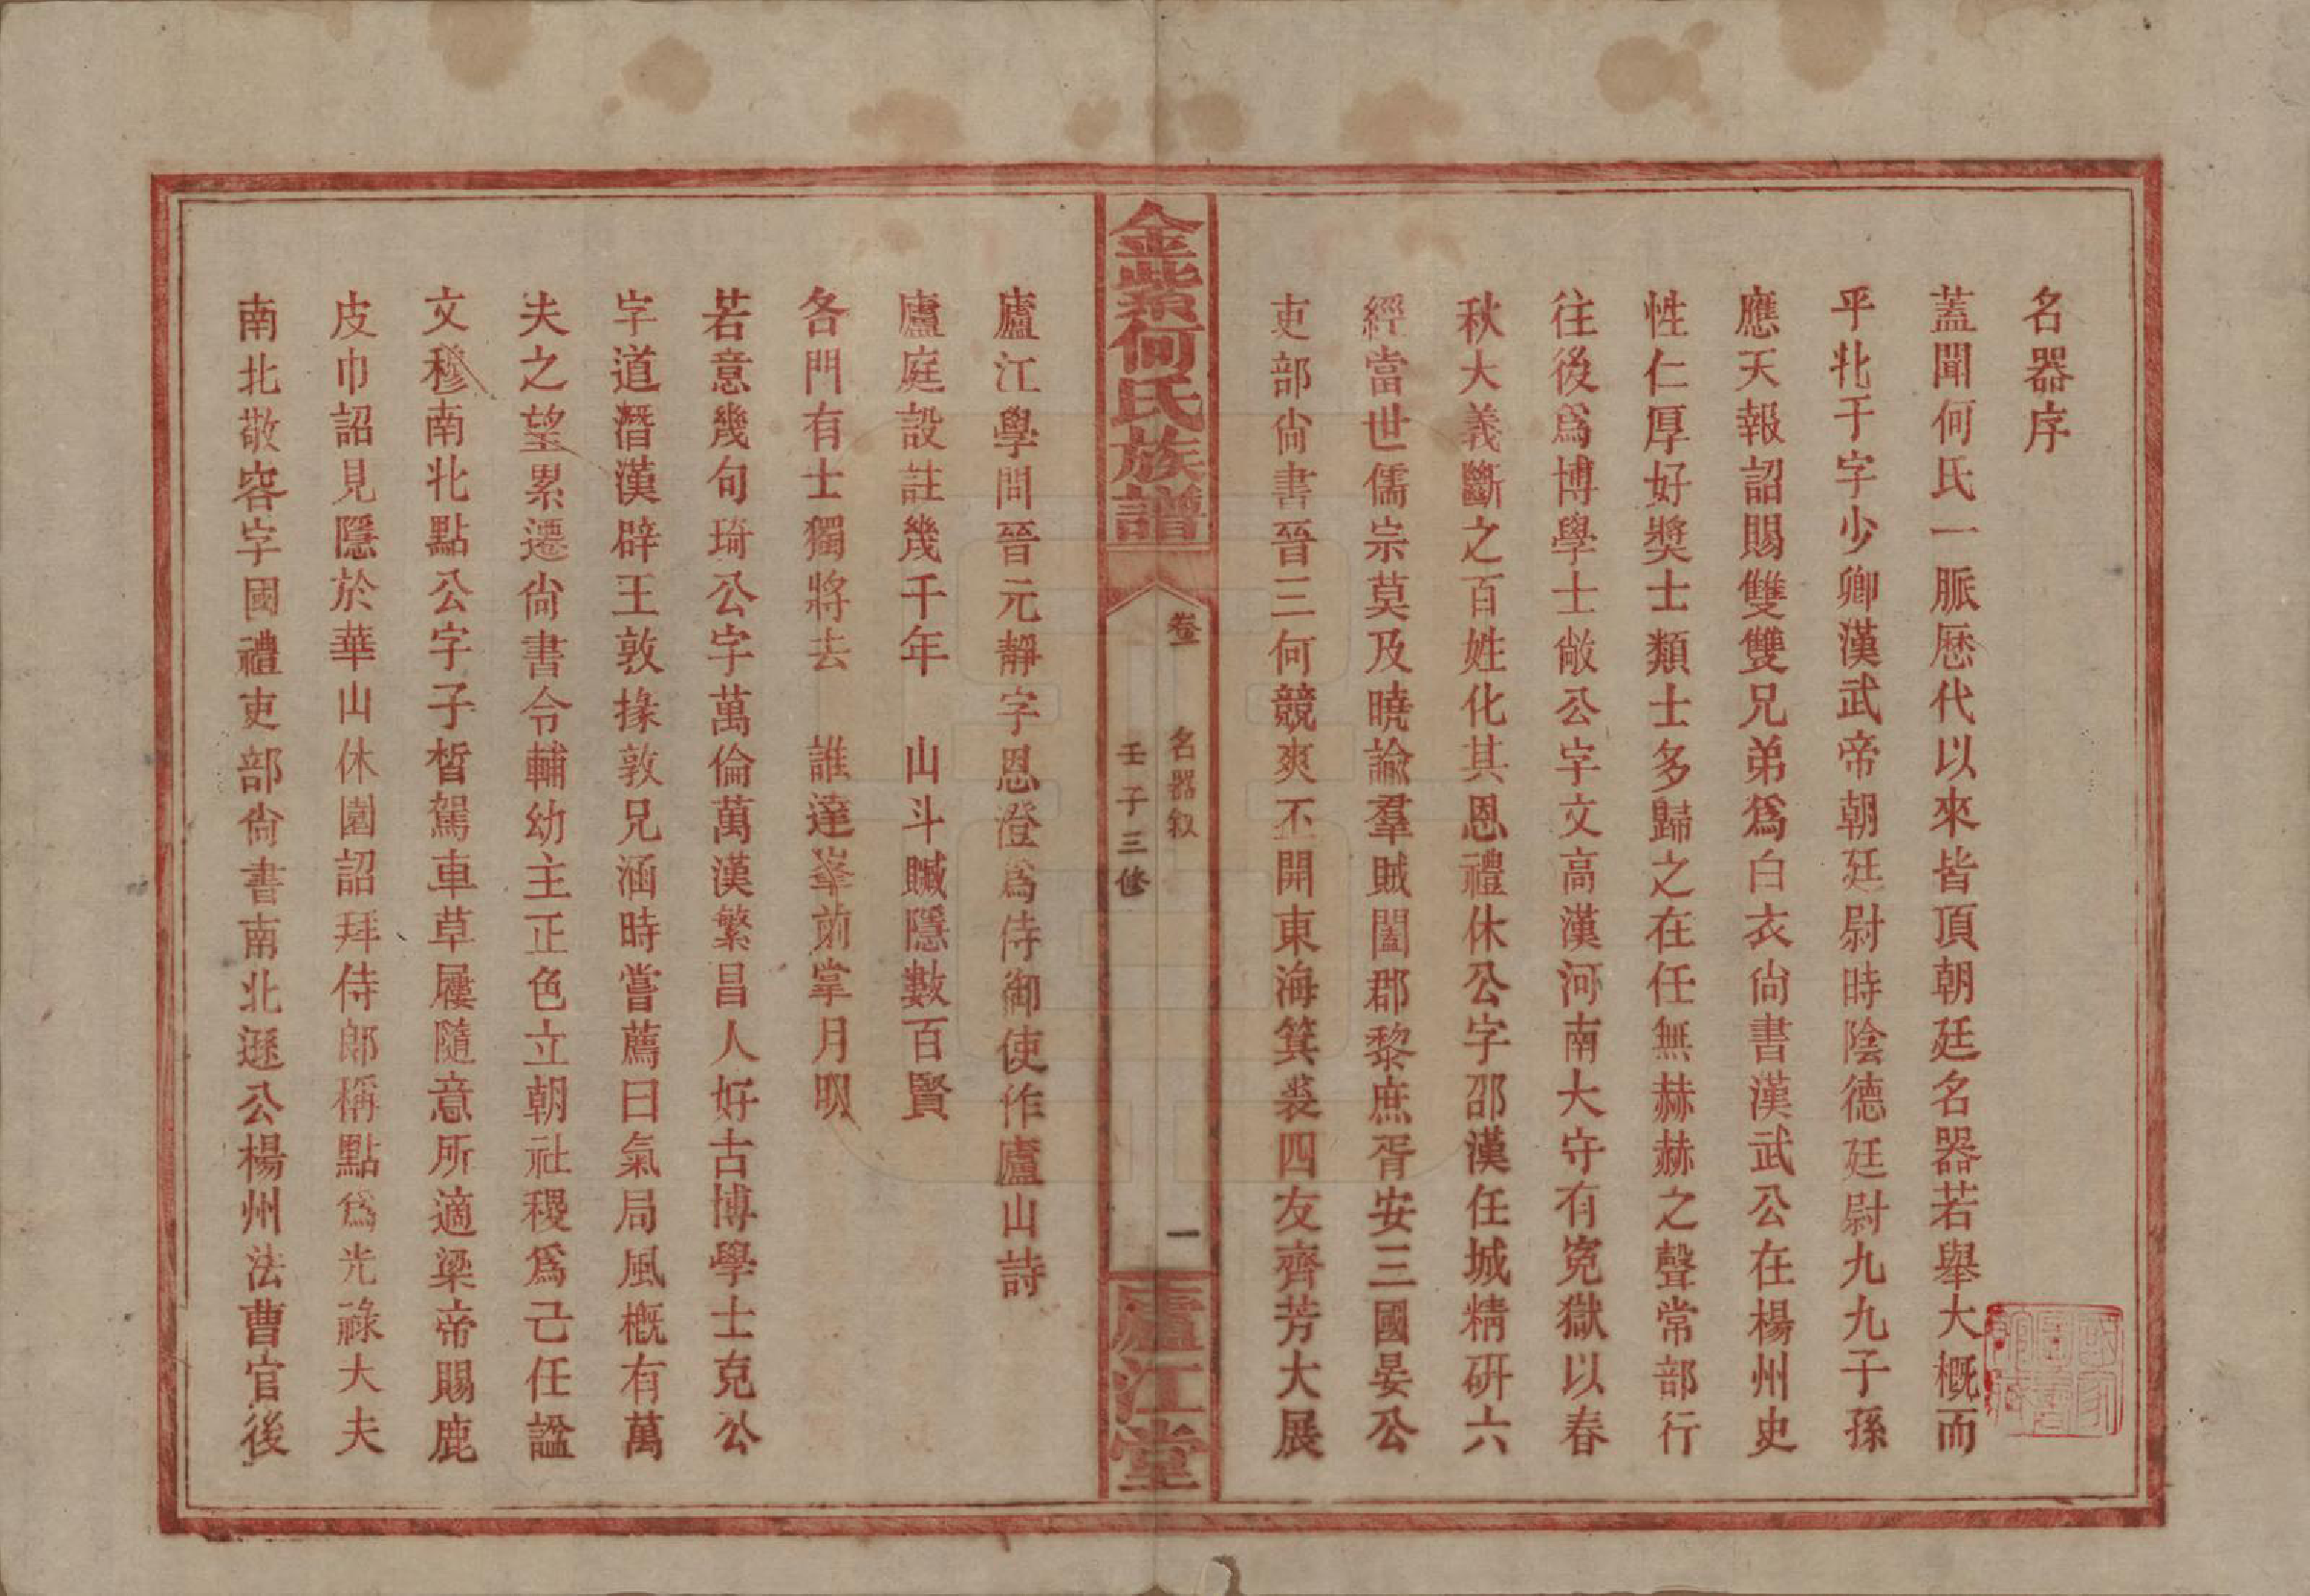 名器序
蓋聞何氏一脈歷代以來皆頂朝廷名器若舉大概而
平北于字少卿漢武帝朝廷尉時陰德廷尉九九子孫
應天報詔賜雙雙兄弟爲白衣尙書漢武公在楊州史
性仁厚好獎士類士多歸之在任無赫赫之聲常部行
往後爲博學士敞公字文高漢河南大守有寃獄以春
秋大義斷之百姓化其恩禮休公字邵漢任城精硏六
經當世儒宗莫及曉諭羣賊闔郡黎庶胥安三國晏公
吏部尙書晉三何競爽丕開東海箕裘四友齊芳大展
金紫何氏族譜
卷
名器叙
壬子三修
一
廬江堂
廬江學問晉元靜字恩澄爲侍御使作廬山詩
廬庭設註幾千年　山斗贓隱數百賢
各門有士獨將去　誰達峯前掌月明
若意幾句琦公字萬倫萬漢繁昌人好古博學士克公
字道潛漢辟王敦掾敦兄涵時嘗薦曰氣局風概有萬
夫之望累遷尙書令輔幼主正色立朝社稷爲己任謚
文穆南北點公字子皙駕車草屨隨意所適梁帝賜鹿
皮巾詔見隱於華山休園詔拜侍郎稱點爲光祿大夫
南北敬容字國禮吏部尙書南北遜公楊州法曹官後